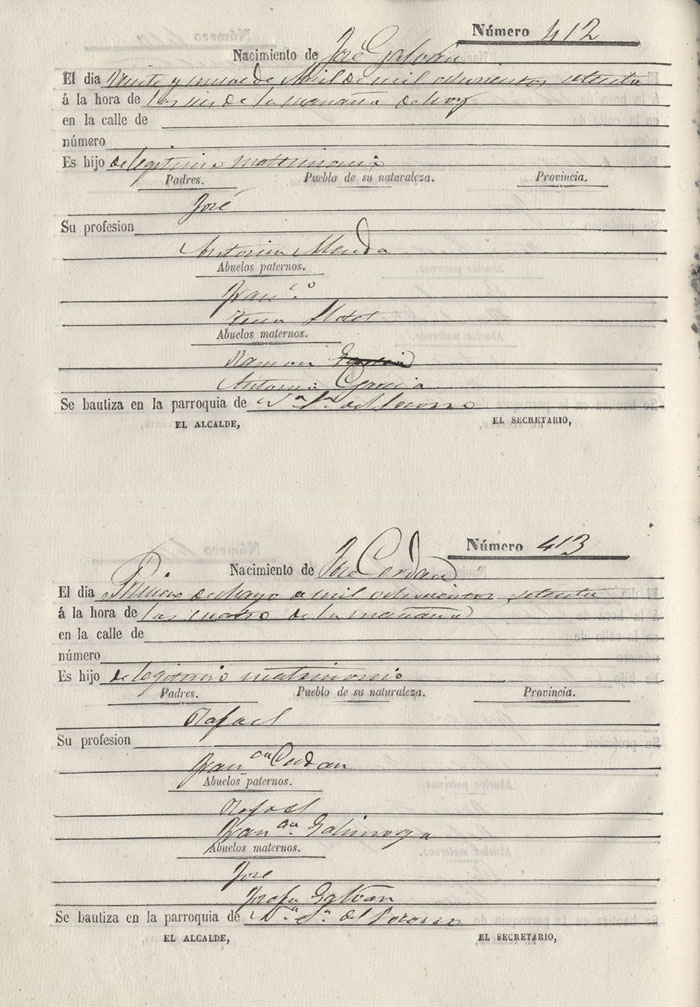 Número 412
Nacimiento de José Galván
El dia Veinte y nueve de Abril de mil ochocientos setenta
á la hora de las seis de la mañana de hoy
en la calle de
número
Es hijo de legitimo matrimonio
Padres. Pueblo de su naturaleza. Provincia.
José
Su profesion
Antonia
Abuelos paternos.
Fran.co
Abuelos maternos.
Ramon
Antonia Garcia
Se bautiza en la parroquia de N.a S.a del Socorro
EL ALCALDE, EL SECRETARIO,
Número 413
Nacimiento de José Cerdan
El dia Primero de Mayo de mil ochocientos setenta
á la hora de las cuatro de la mañana
en la calle de
número
Es hijo de legitimo matrimonio
Padres. Pueblo de su naturaleza. Provincia.
Rafael
Su profesion
Fran.ca Cerdan
Abuelos paternos.
Rafael
Fran.ca
Abuelos maternos.
José
Josefa Galván
Se bautiza en la parroquia de N.a S.a del Socorro
EL ALCALDE, EL SECRETARIO,